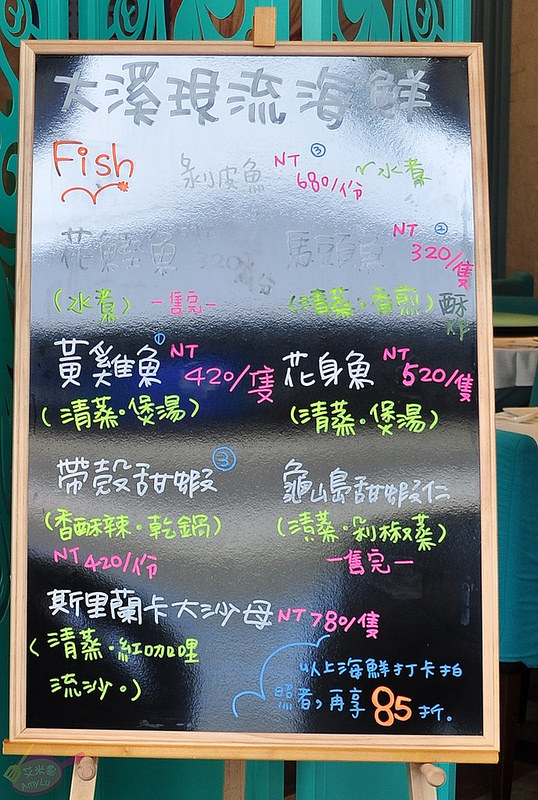 大溪現流海鮮
Fish 剝皮魚 NT 680/份 ③ 水煮
花 魚 馬頭魚 NT 320/隻 ②
(水煮) 一售完一 (清蒸·香煎) 酥炸
黃雞魚 ① NT 420/隻 花身魚 NT 520/隻
(清蒸·煲湯) (清蒸·煲湯)
帶殼甜蝦 ③ 龜山島甜蝦仁
(香酥辣·乾鍋) (清蒸·剁椒蒸)
NT 420/份 一售完一
斯里蘭卡大沙母 NT 780/隻
(清蒸·紅咖哩
流沙。)
以上海鮮打卡拍
照者,再享85折。
艾米露
AmyLu